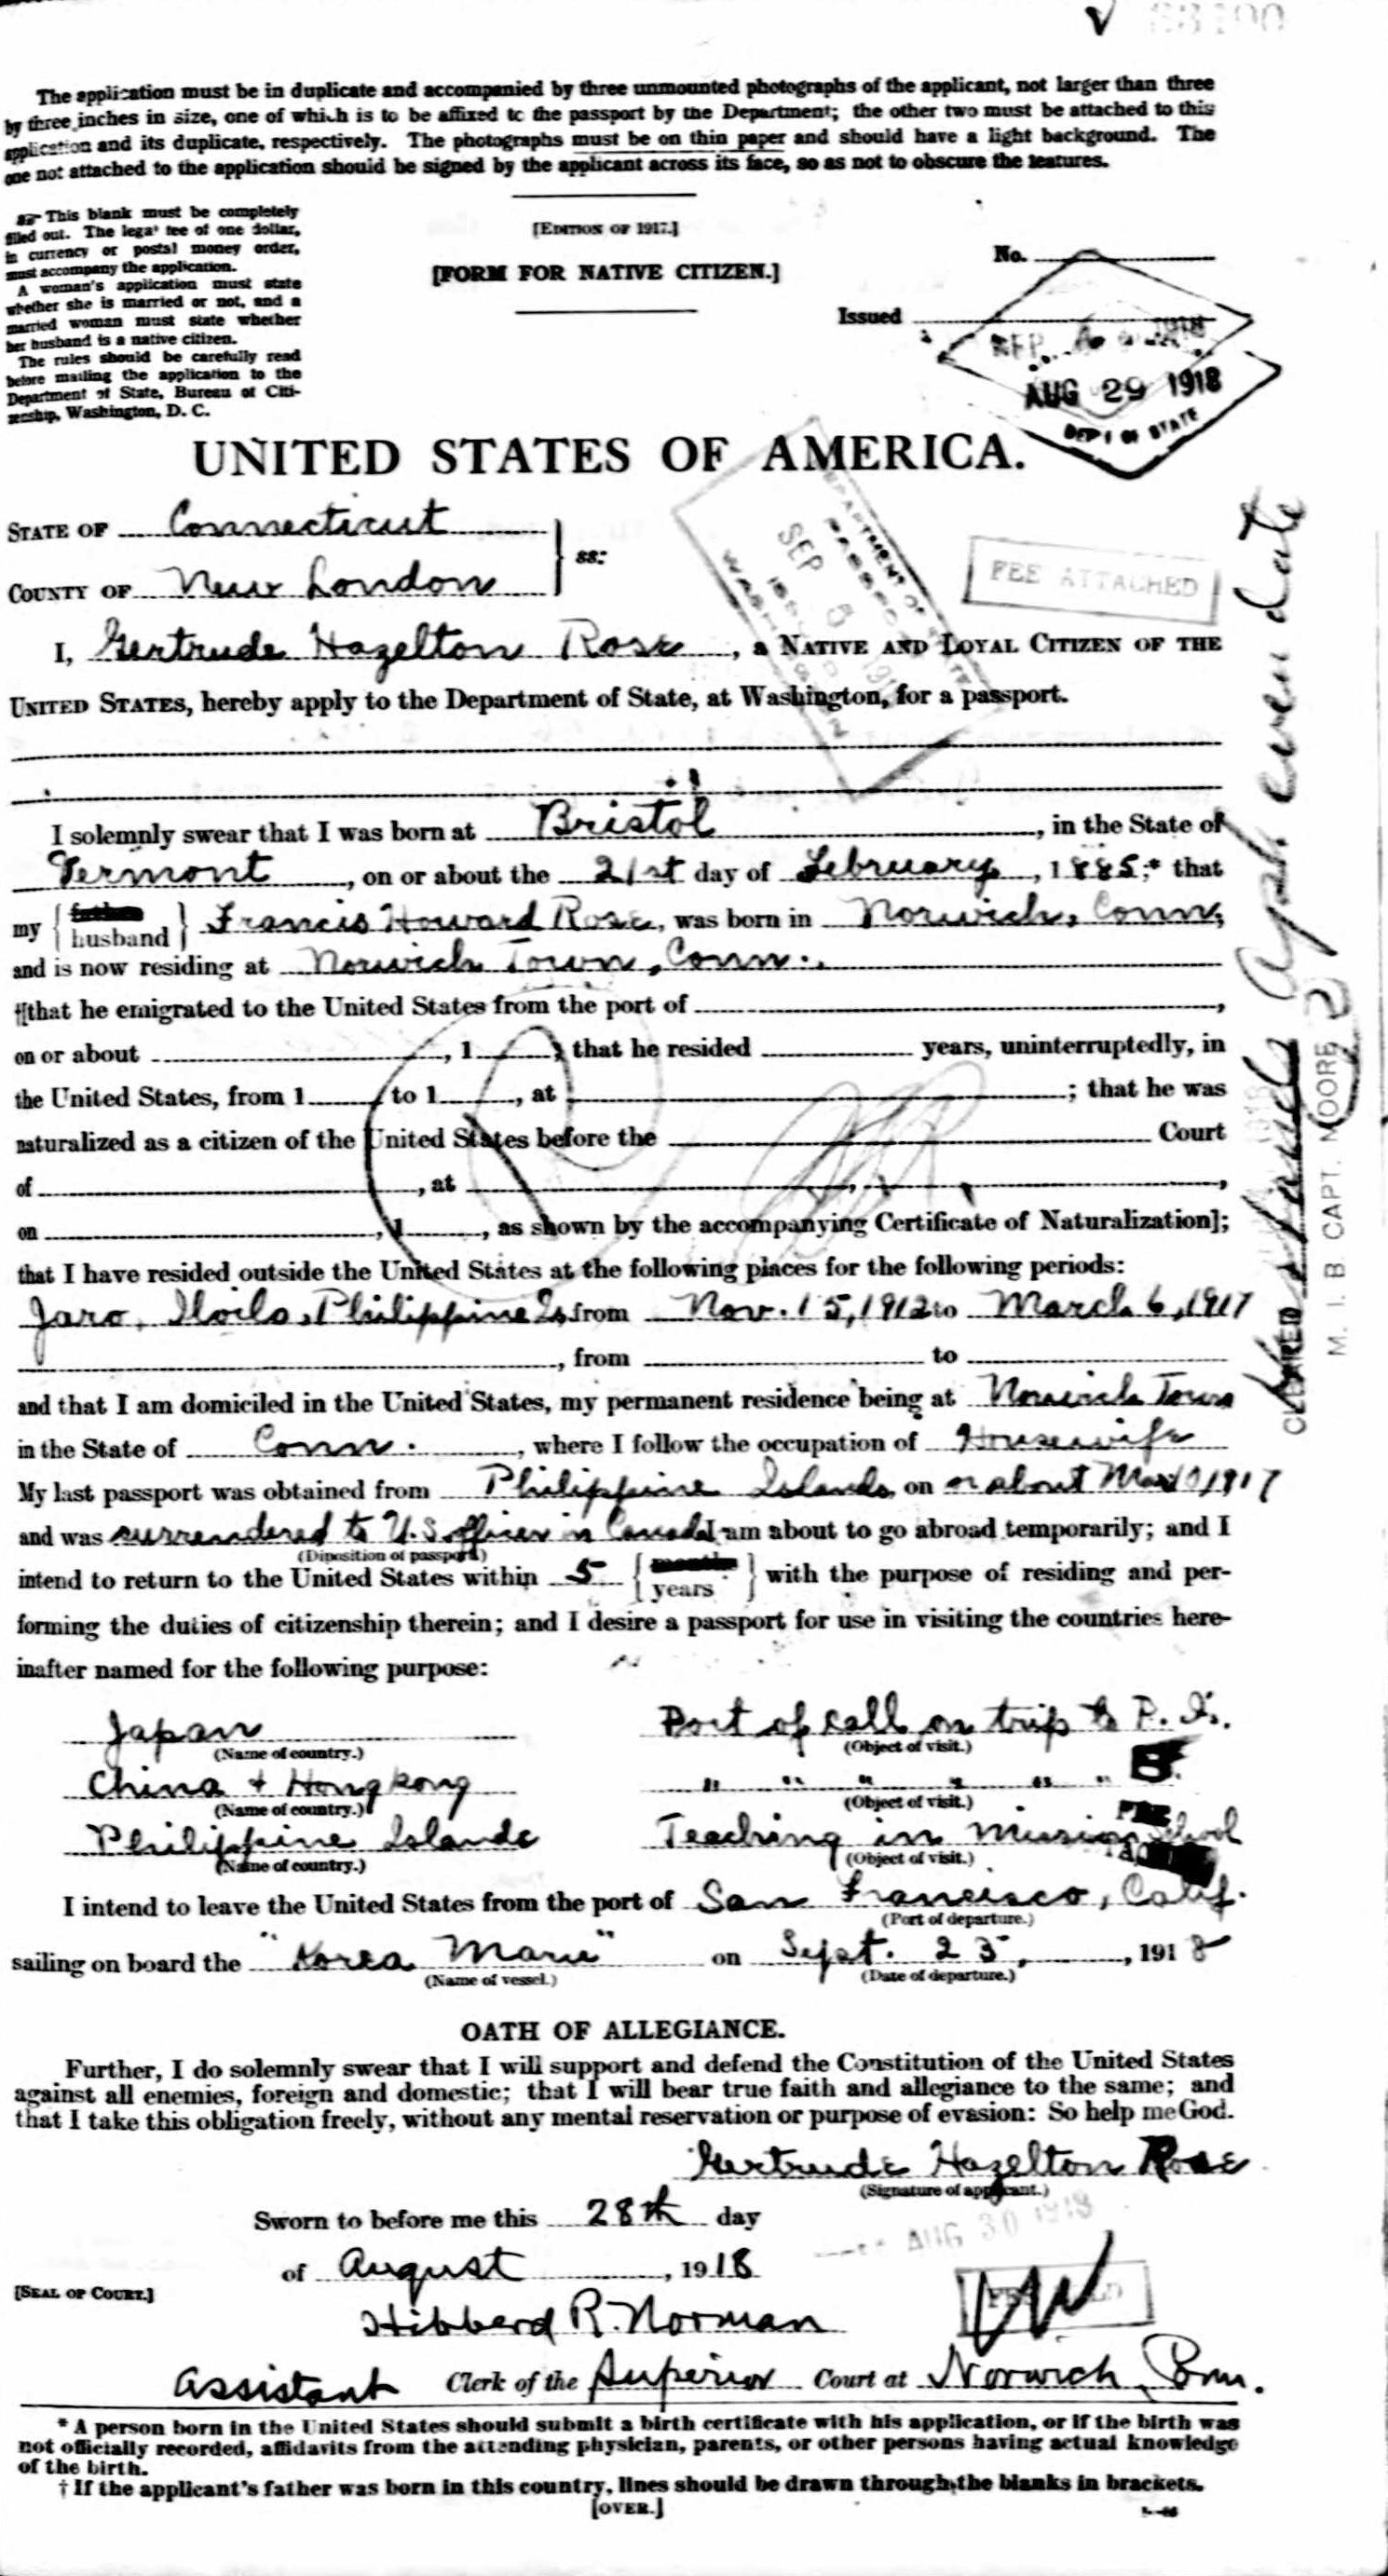 The application must be in duplicate and accompanied by three unmounted photographs of the applicant, not larger than three
by three inches in size, one of which is to be affixed to the passport by the Department; the other two must be attached to this
application and its duplicate, respectively. The photographs must be on thin paper and should have a light background. The
one not attached to the application should be signed by the applicant across its face, so as not to obscure the features.
This blank must be completely
filled out. The legal fee of one dollar,
in currency or postal money order,
must accompany the application.
A woman's application must state
whether she is married or not, and a
married woman must state whether
her husband is a native citizen.
The rules should be carefully read
before mailing the application to the
Department of State, Bureau of Citi-
zenship, Washington, D. C.
[EDITION OF 1917.]
[FORM FOR NATIVE CITIZEN.]
No.
Issued
AUG 29 1918
DEPT OF STATE
UNITED STATES OF AMERICA.
STATE OF Connecticut
COUNTY OF New London
ss:
FEE ATTACHED
I, Gertrude Hazelton Rose, a NATIVE AND LOYAL CITIZEN OF THE
UNITED STATES, hereby apply to the Department of State, at Washington, for a passport.
I solemnly swear that I was born at Bristol, in the State of
Vermont, on or about the 21st day of February, 1885;* that
my { father husband } Francis Howard Rose, was born in Norwich, Conn,
and is now residing at Norwich Town, Conn.
†[that he emigrated to the United States from the port of
on or about , 1 ; that he resided years, uninterruptedly, in
the United States, from 1 to 1 , at ; that he was
naturalized as a citizen of the United States before the Court
of , at ,
on , 1 , as shown by the accompanying Certificate of Naturalization];
that I have resided outside the United States at the following places for the following periods:
Jaro, Iloilo, Philippine Is, from Nov. 15, 1912 to March 6, 1917
, from to
and that I am domiciled in the United States, my permanent residence being at Norwich Town
in the State of Conn., where I follow the occupation of Housewife
My last passport was obtained from Philippine Islands, on or about Mar 1917
and was surrendered to U.S. officer in Canada I am about to go abroad temporarily; and I
(Diposition of passport)
intend to return to the United States within 5 { months years } with the purpose of residing and per-
forming the duties of citizenship therein; and I desire a passport for use in visiting the countries here-
inafter named for the following purpose:
Japan Port of call on trip to P. I.
(Name of country.) (Object of visit.)
China & Hongkong " " " " " "
(Name of country.) (Object of visit.)
Philippine Islands Teaching in Mission School
(Name of country.) (Object of visit.)
I intend to leave the United States from the port of San Francisco, Calif.
(Port of departure.)
sailing on board the "Korea Maru" on Sept. 23, 1918
(Name of vessel.) (Date of departure.)
OATH OF ALLEGIANCE.
Further, I do solemnly swear that I will support and defend the Constitution of the United States
against all enemies, foreign and domestic; that I will bear true faith and allegiance to the same; and
that I take this obligation freely, without any mental reservation or purpose of evasion: So help me God.
Gertrude Hazelton Rose
(Signature of applicant.)
Sworn to before me this 28th day
AUG 30 1918
of August, 1918
[SEAL OF COURT.]
Hibberd R. Norman
Assistant Clerk of the Superior Court at Norwich, Conn.
* A person born in the United States should submit a birth certificate with his application, or if the birth was
not officially recorded, affidavits from the attending physician, parents, or other persons having actual knowledge
of the birth.
† If the applicant's father was born in this country, lines should be drawn through the blanks in brackets.
[OVER.]
M. I. B. CAPT. MOORE